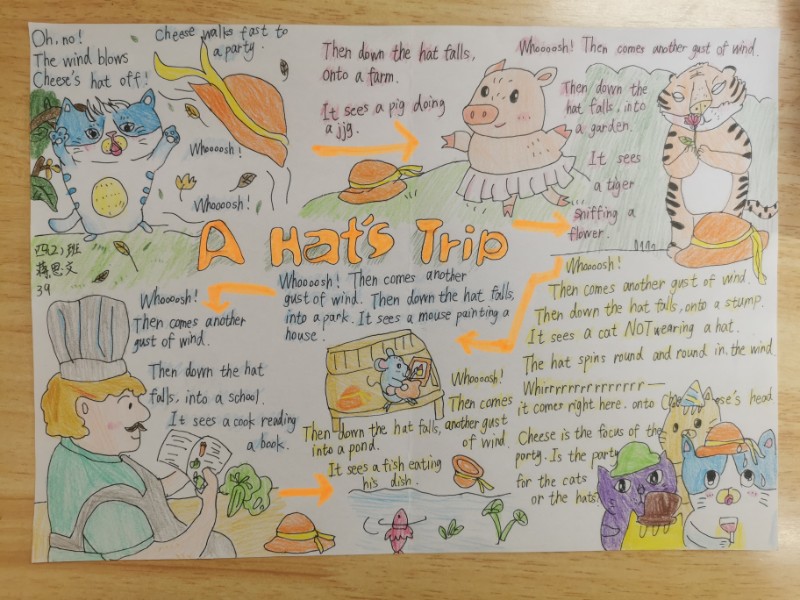 Oh, no!
The wind blows
Cheese's hat off!
Cheese walks fast to
a party.
Whoooosh!
Whoooosh!
Then down the hat falls,
onto a farm.
It sees a pig doing
a jjg.
Whoooosh! Then comes another gust of wind.
Then down the
hat falls, into
a garden.
It sees
a tiger
sniffing a
flower.
A Hat's Trip
四(2)班
蒋思文
39
Whoooosh!
Then comes another
gust of wind.
Then down the hat
falls, into a school.
It sees a cook reading
a book.
Whoooosh! Then comes another
gust of wind. Then down the hat falls,
into a park. It sees a mouse painting a
house.
Whoooosh!
Then comes
another gust
of wind.
Then down the hat falls,
into a pond.
It sees a fish eating
his dish.
Whoooosh!
Then comes another gust of wind.
Then down the hat falls, onto a stump.
It sees a cat NOT wearing a hat.
The hat spins round and round in the wind
Whirrrrrrrrrrrrrr—
it comer right here. onto Cheese's head
Cheese is the focus of the
party. Is the party
for the cats
or the hats?